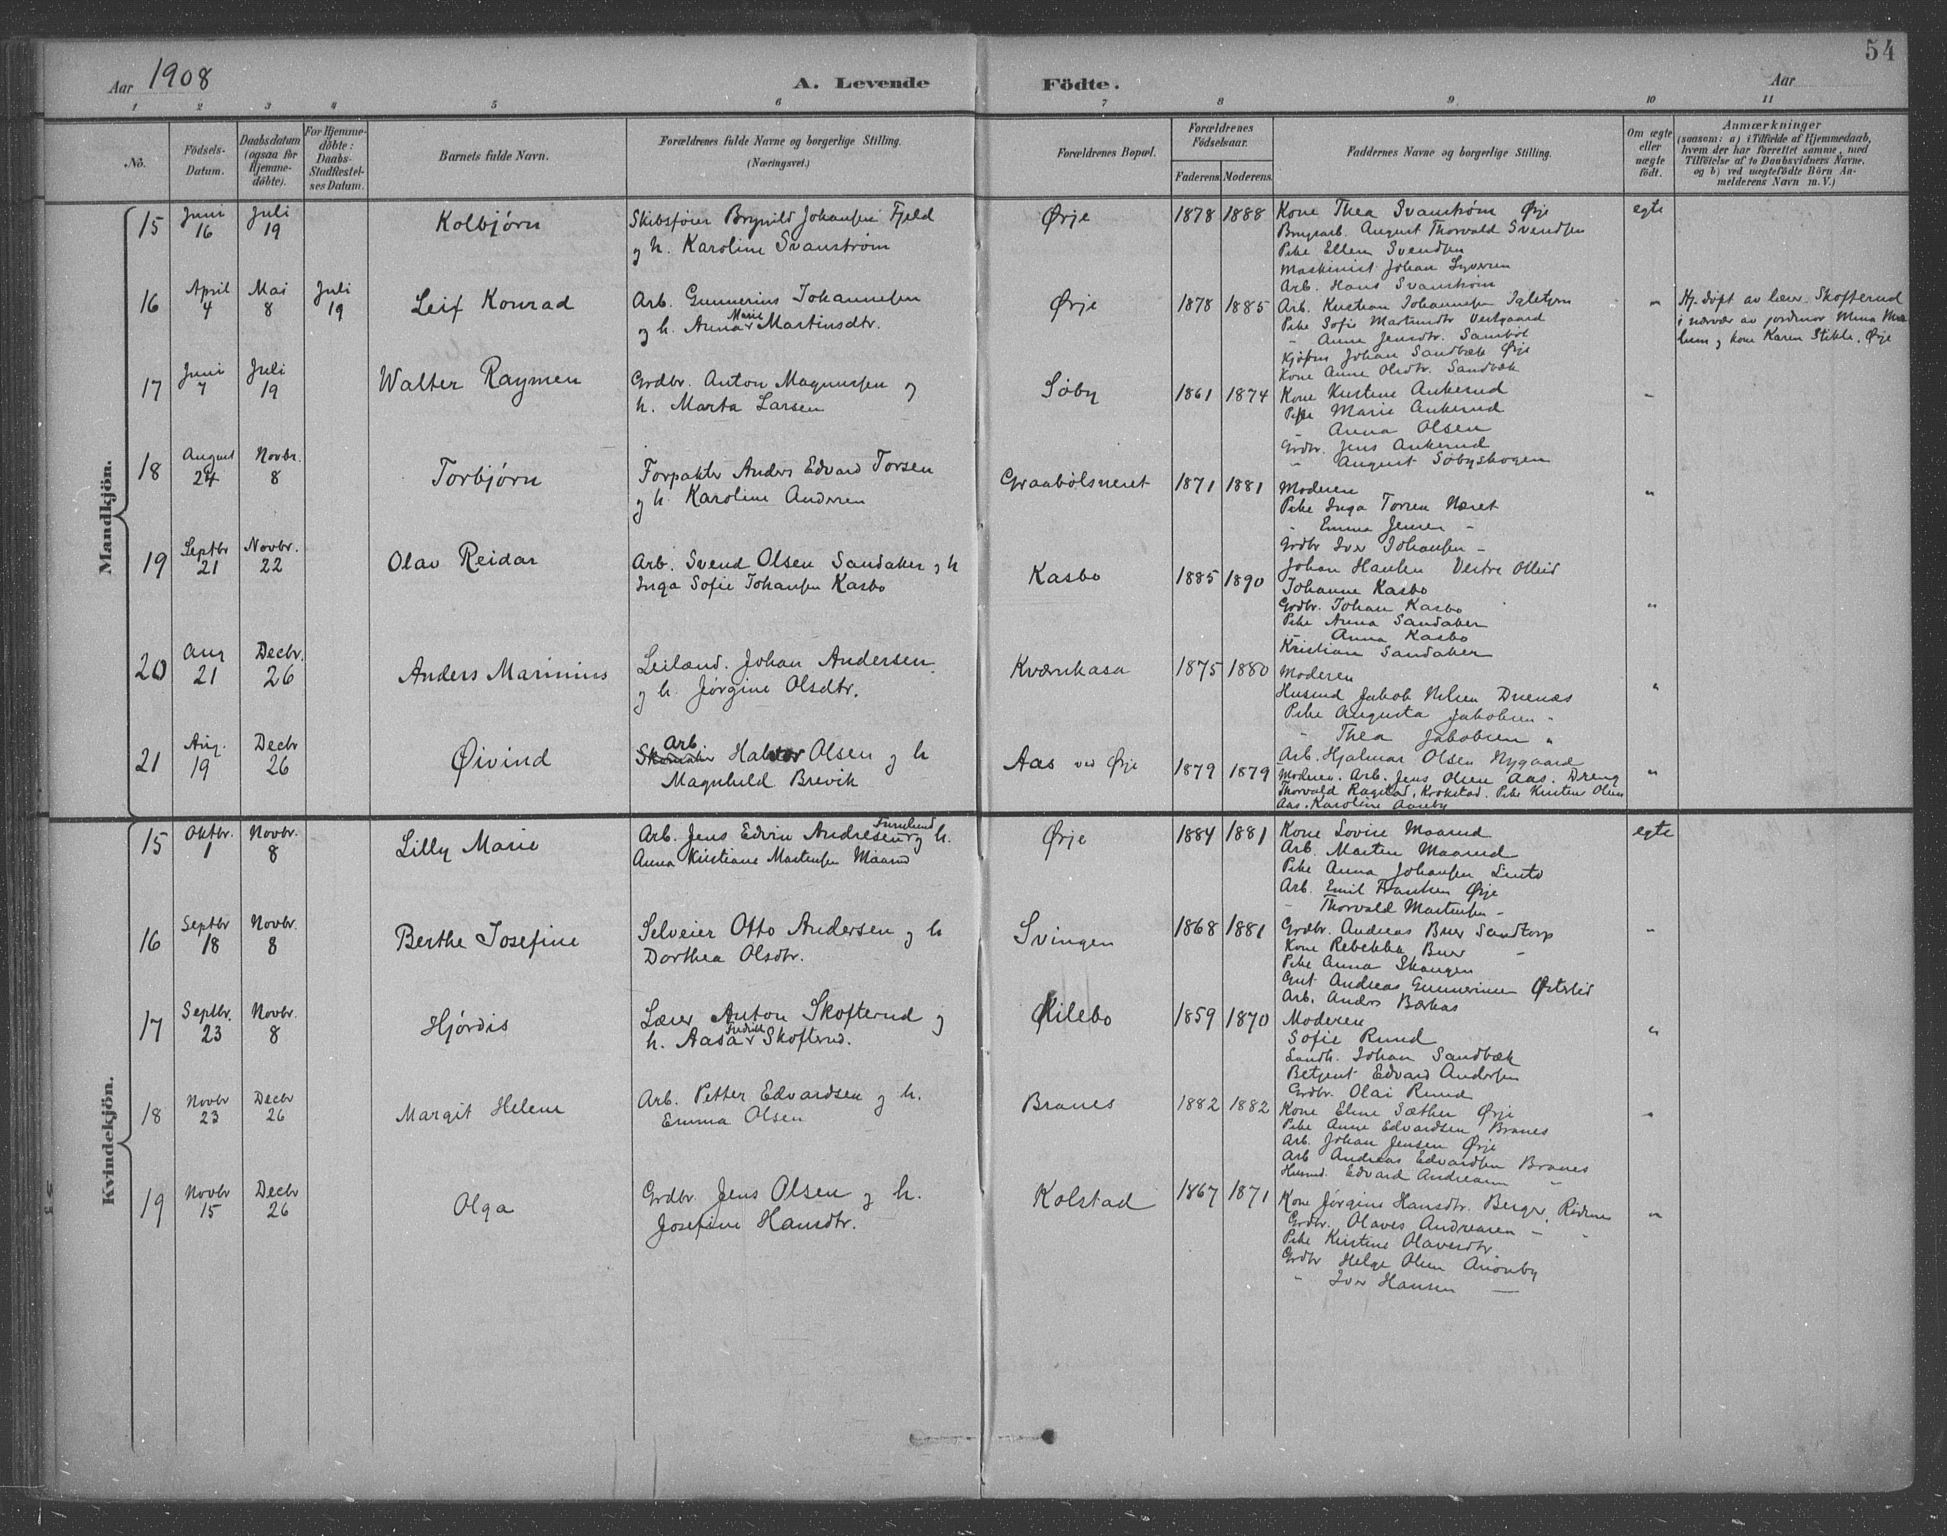 54
Aar 1908
A. Levende Födte.
Aar
1 2 3 4 5 6 7 8 9 10 11
No.
Födsels-Datum.
Daabsdatum (ogsaa for Hjemmedöbte).
For Hjemmedöbte: Daabs-Stadfæstelses Datum.
Barnets fulde Navn.
Forældrenes fulde Navne og borgerlige Stilling. (Næringsvei.)
Forældrenes Bopæl.
Forældrenes Födselsaar.
Faderens. Moderens.
Faddernes Navne og borgerlige Stilling.
Om ægte eller uægte födt.
Anmærkninger
(saasom: a) i Tilfælde af Hjemmedaab, hvem der har forrettet samme, med Tilföielse af to Daabsvidners Navne, og b) ved uægtefödte Börn Anmelderens Navn m. V.)
Mandkjön.
15 Juni 16 Juli 19 Kolbjørn
Skibsfører Brynild Johansen Fjeld
og h. Karoline Svanstrøm
Ørje 1878 1888
Kone Thea Svanstrøm Ørje
Brugsarb. August Thorvald Svendsen
Pike Ellen Svendsen
Maskinist Johan Lyveren
Arb. Hans Svanstrøm
egte
16 April 4 Mai 8 Juli 19 Leif Konrad
Arb. Gunnerius Johannesen
og h. Anna Marie Martinsdtr.
Ørje 1878 1885
Arb. Kristian Johannesen
Pike Sofie Martinsdtr Vestgaard
" Anne Jensdtr. Sambøl
Kjøbm. Johan Sandbæk Ørje
Kone Anne Olsdtr. Sandbæk
"
Hj. døpt av lærer Skofterud
i nærvær av jordmor Mina
og kone Karen Stikle, Ørje
17 Juni 7 Juli 19 Walter Raymen
Grdbr. Anton Magnussen og
h. Marta Larsen
Søby 1861 1874
Kone Kristine Ankerud
Pike Marie Ankerud
" Anna Olsen
Grdbr. Jens Ankerud
" August Søbyskogen
"
18 August 24 Novbr. 8 Torbjørn
Forpakter Anders Edvard Torsen
og h. Karoline Andersen
Graabølsneret 1871 1881
Moderen
Pike Inga Torsen Næret
" Emma Jensen "
Grdbr Iver Johansen "
Johan Hansen Vestre Otteid
"
19 Septbr 21 Novbr. 22 Olav Reidar
Arb. Svend Olsen Sandaker og h
Inga Sofie Johansen Kasbo
Kasbo 1885 1890
Johanne Kasbo
Grdbr. Johan Kasbo
Pike Anna Sandaker
" Anna Kasbo
Kristian Sandaker
"
20 Aug 21 Decbr. 26 Anders Marinius
Leilænd. Johan Andersen
og h. Jørgine Olsdtr.
Kværnhasa 1875 1880
Moderen
Husmd Jakob Nilsen Duenæs
Pike Augusta Jakobsen "
" Thea Jakobsen "
Arb. Hjalmar Olsen Nygaard
"
21 Aug. 19 Decbr 26 Øivind
Skomaker Arb Halvor Olsen og h
Magnhild Brevik
Aas ved Ørje 1879 1879
Moderen. Arb. Jens Olsen Aas. Dreng
Thorvald Ragstad, Krokstad. Pike Kristine Olsen
Aas. Karoline Aaneby
"
Kvindekjön.
15 Oktbr. 1 Novbr. 8 Lilly Marie
Arb. Jens Edvin Andresen og h.
Anna Kristiane Martensen Maarud
Ørje 1884 1881
Kone Lovise Maarud
Arb. Marten Maarud
Pike Anna Johansen Linto
Arb. Emil Frantsen Ørje
" Thorvald Martensen "
egte
16 Septbr 18 Novbr. 8 Berthe Josefine
Selveier Otto Andersen og h
Dorthea Olsdtr.
Svingen 1868 1881
Grdbr. Andreas Buer Sandtorp
Kone Rebekka Buer "
Pike Anna Skaugen
Gut Andreas Gunneriusen Østelid
Arb. Anders Børkas
"
17 Septbr. 23 Novbr. 8 Hjørdis
Lærer Anton Skofterud og
h. Aasa Skofterud.
Kilebo 1859 1870
Moderen
Sofie Rund
Landh. Johan Sandbæk
Betjent Edvard Andersen
Grdbr. Olai Rund
"
18 Novbr 23 Decbr 26 Margit Helene
Arb. Petter Edvardsen og h.
Emma Olsen
Branes 1882 1882
Kone Eline Sæther Ørje
Pike Anne Edvardsen Branes
Arb. Johan Jensen Ørje
Arb Andreas Edvardsen Branes
Husmd. Edvard Andreasen "
"
19 Novbr 15 Decbr 26 Olga
Grdbr. Jens Olsen og h.
Josefine Hansdtr.
Kolstad 1867 1871
Kone Jørgine Hansdtr. Berger, Rødenes
Grdbr. Olaves Andreasen " "
Pike Kristine Olavesdtr
Grdbr Helge Olsen Anonby
" Iver Hansen "
"